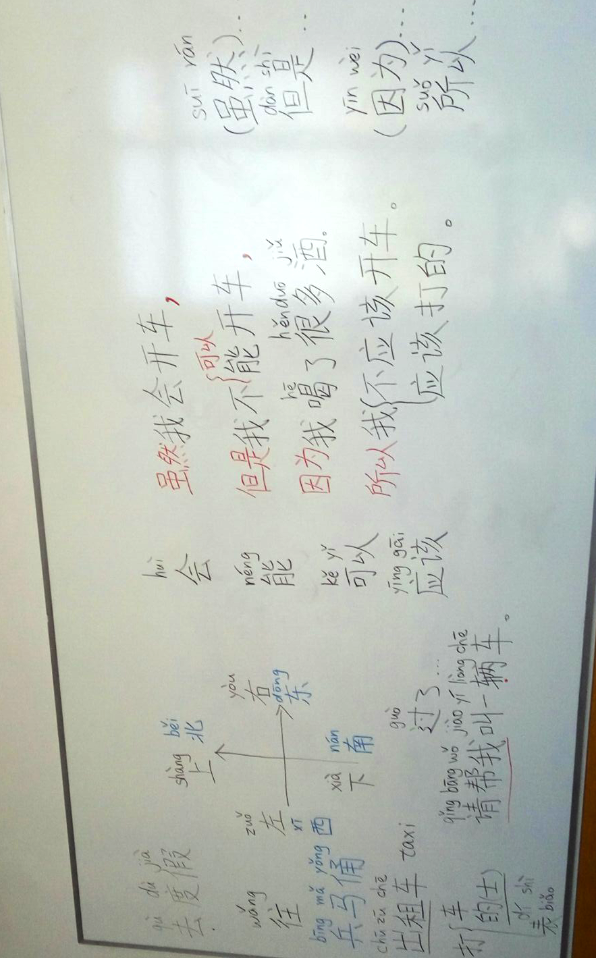 qù dù jià
去度假
wǎng
往
bīng mǎ yǒng
兵马俑
chū zū chē
出租车 taxi
打车
(的士)
dī shì
表 biǎo
shàng
上
běi
北
zuǒ
左
xī
西
yòu
右
dōng
东
xià
下
nán
南
guò
过了...
qǐng bāng wǒ jiào yī liàng chē
请帮我叫一辆车。
huì
会
néng
能
kě yǐ
可以
yīng gāi
应该
虽然我会开车,
可以
但是我不{能开车,
hē hěn duō jiǔ
因为我喝了很多酒。
所以我{不应该开车。
应该打的。
suī rán
(虽然)...
dàn shì
但是...
yīn wèi
(因为)...
suǒ yǐ
所以...